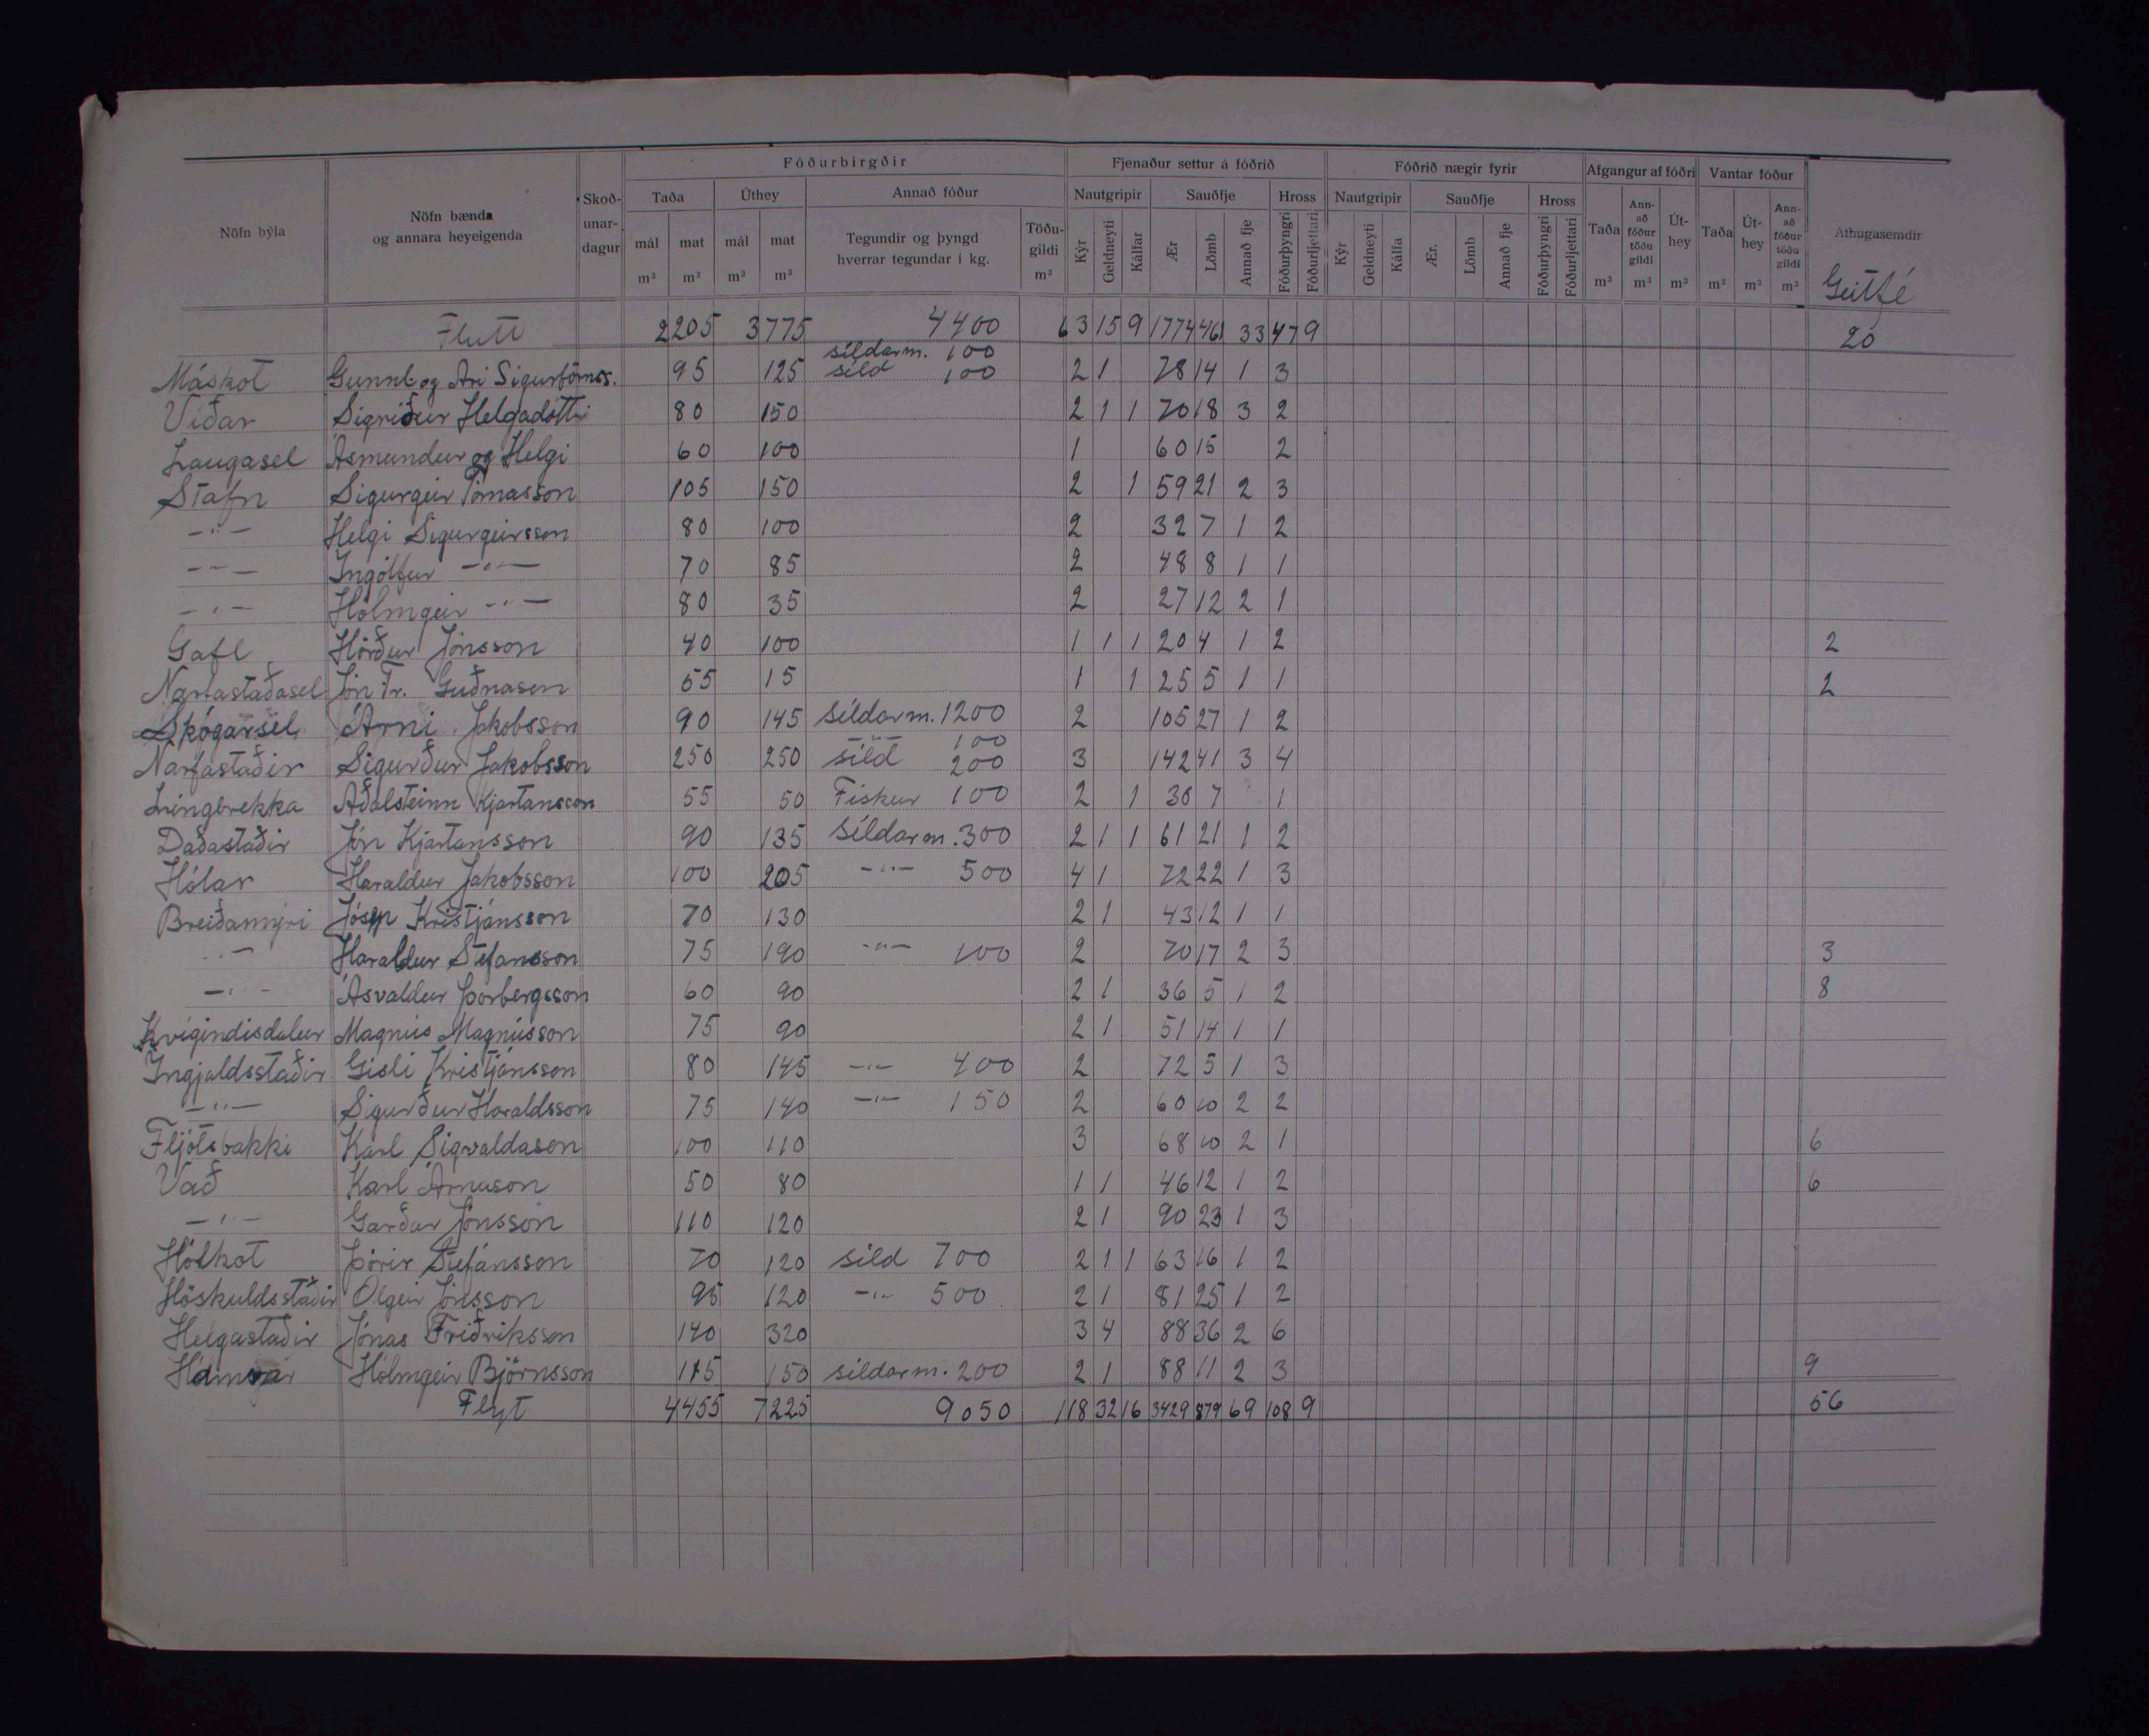 Fóðurbirgðir Fjenaður settur á fóðrið Fóðrið nægir fyrir Afgangur af fóðri Vantar fóður
Nöfn býla Nöfn bænda og annara heyeigenda Skoð-unar-dagur Taða Úthey Annað fóður Nautgripir Sauðfje Hross Nautgripir Sauðfje Hross Taða Ann-að fóður töðu gildi Út-hey Taða Út-hey Ann-að fóður töðu gildi Athugasemdir
mál mat mál mat Tegundir og þyngd hverrar tegundar í kg. Töðu-gildi Kýr Geldneyti Kálfar Ær Lömb Annað fje Fóðurþyngri Fóðurljettari Kýr Geldneyti Kálfa Ær. Lömb Annað fje Fóðurþyngri Fóðurljettari
m³ m³ m³ m³ m³ m³ m³ m³ m³ m³ m³ Geitfé
Flutt 2205 3775 4400 63 15 9 1774 461 33 47 9 20
síldarm. 100
Máskot Gunnl. og Ari Sigurbjörnss. 95 125 síld 100 2 1 78 14 1 3
Víðar Sigríður Helgadóttir 80 150 2 1 1 70 18 3 2
Laugasel Ásmundur og Helgi 60 100 1 60 15 2
Stafn Sigurgeir Tómasson 105 150 2 1 59 21 2 3
-"- Helgi Sigurgeirsson 80 100 2 32 7 1 2
-"- Ingólfur -"- 70 85 2 48 8 1 1
-"- Hólmgeir -"- 80 35 2 27 12 2 1
Gafl Hörður Jónsson 40 100 1 1 1 20 4 1 2 2
Narfastaðasel Jón Tr. Guðnason 55 15 1 1 25 5 1 1 2
Skógarsel Árni Jakobsson 90 145 Síldarm. 1200 2 105 27 1 2
-"- 100
Narfastaðir Sigurður Jakobsson 250 250 síld 200 3 142 41 3 4
Lingbrekka Aðalsteinn Kjartansson 55 50 Fiskur 100 2 1 30 7 1
Daðastaðir Jón Kjartansson 90 135 Síldarm. 300 2 1 1 61 21 1 2
Hólar Haraldur Jakobsson 100 205 -"- 500 4 1 72 22 1 3
Breiðamýri Jósep Kristjánsson 70 130 2 1 43 12 1 1
-"- Haraldur Stefansson 75 190 -"- 100 2 70 17 2 3 3
-"- Ásvaldur Þorbergsson 60 90 2 1 36 5 1 2 8
Kvígindisdalur Magnús Magnússon 75 90 2 1 51 14 1 1
Ingjaldsstaðir Gísli Kristjánsson 80 145 -"- 400 2 72 5 1 3
-"- Sigurður Haraldsson 75 140 -"- 150 2 60 10 2 2
Fljótsbakki Karl Sigvaldason 100 110 3 68 10 2 1 6
Vað Karl Árnason 50 80 1 1 46 12 1 2 6
-"- Garðar Jónsson 110 120 2 1 90 23 1 3
Hólkot Þórir Stefánsson 70 120 síld 700 2 1 1 63 16 1 2
Höskuldsstaðir Olgeir Jónsson 95 120 -"- 500 2 1 81 25 1 2
Helgastaðir Jónas Friðriksson 140 320 3 4 88 36 2 6
Hamrar Hólmgeir Björnsson 115 150 síldarm. 200 2 1 88 11 2 3 9
Flyt 4455 7225 9050 118 32 16 3429 879 69 108 9 56